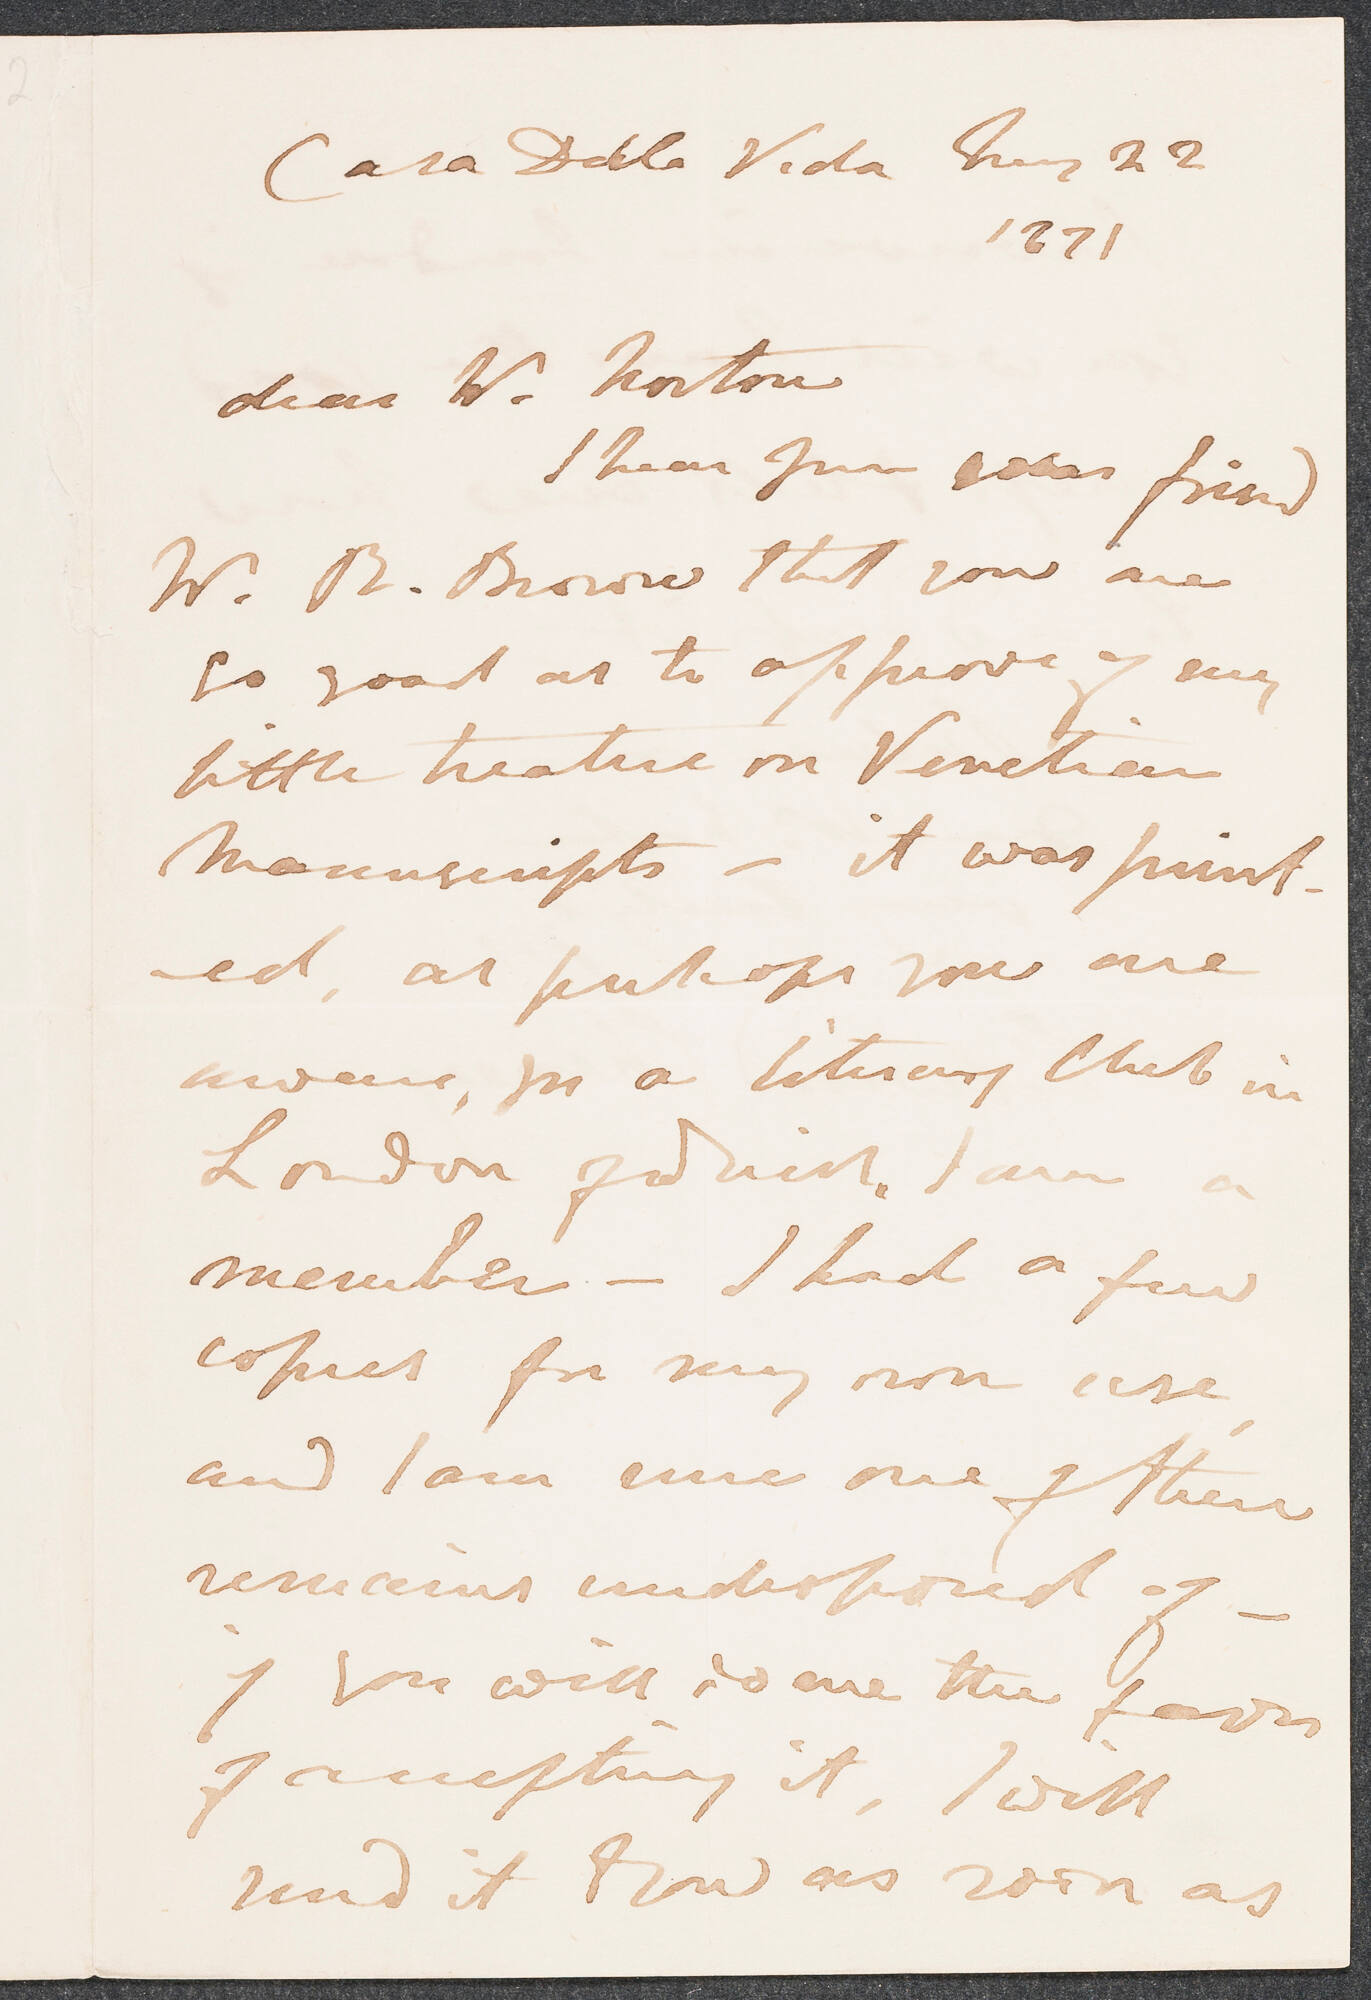 2
Casa Della Vida May 22
1871
dear Mr. Norton
I hear from our friend
Mr. R. Brown that you are
so good as to approve of my
little treatise on Venetian
Manuscripts – it was print-
-ed, as perhaps you are
aware, for a literary Club in
London of which I am a
member – I had a few
copies for my own use,
and I am sure one of them
remains undisposed of –
if you will do me the favor
of accepting it, I will
send it to you as soon as